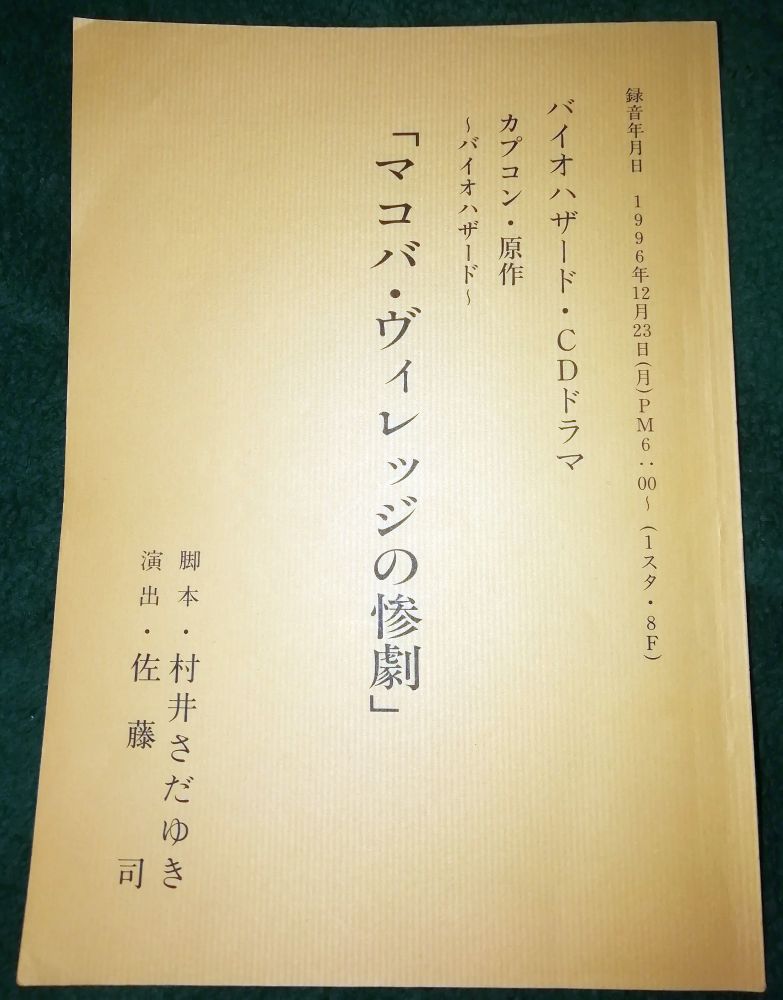 録音年月日 1996年12月23日(月)PM6:00~(1スタ・8F)
バイオハザード・CDドラマ
カプコン・原作
~バイオハザード~
「マコバ・ヴィレッジの惨劇」
脚本・村井さだゆき
演出・佐藤 司